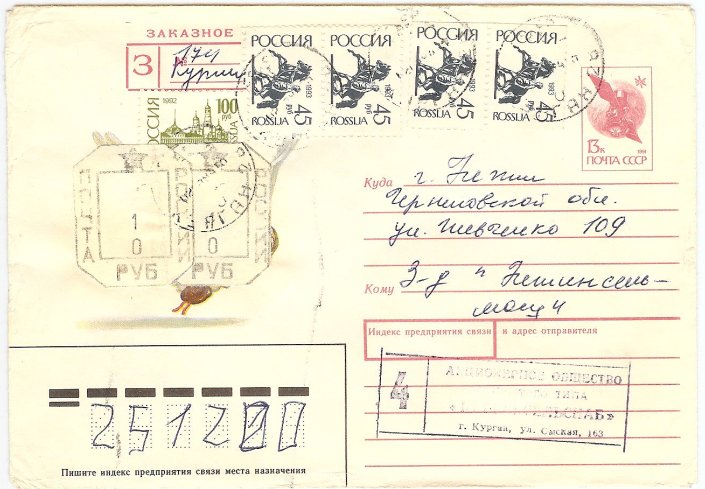 ЗАКАЗНОЕ
З № 174
РОССИЯ РОССИЯ РОССИЯ РОССИЯ
1993 45 руб 1993 45 руб 1993 45 руб 1993 45 руб
ROSSIJA ROSSIJA ROSSIJA ROSSIJA
РОССИЯ 1992 100 руб
13к
ПОЧТА СССР
ПОЧТА РОССИИ РОССИИ
1 0 РУБ
0 РУБ
Куда г. Нежин
Черниговской обл.
ул. Шевченко 109
Кому З-д "Нежинсель-
маш"
Индекс предприятия связи и адрес отправителя
4
АКЦИОНЕРНОЕ ОБЩЕСТВО
ТИПА
г. Курган, ул. Омская, 163
2512
Пишите индекс предприятия связи места назначения